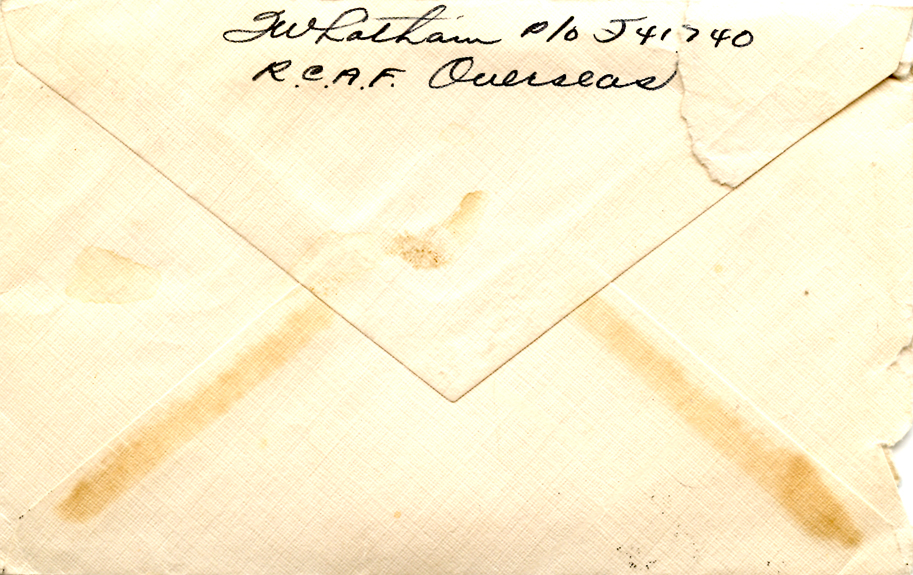 JW Latham P/O J41740
R.C.A.F. Overseas